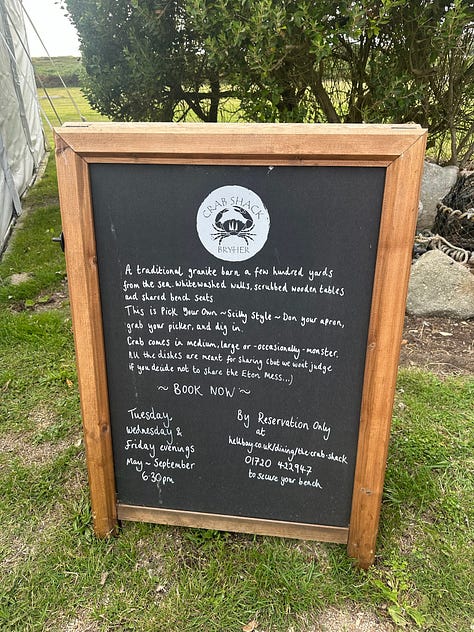 CRAB SHACK
BRYHER
A traditional granite barn a few hundred yards
from the sea. Whitewashed walls, scrubbed wooden tables
and shared bench seats
This is Pick Your Own ~ Scilly Style ~ Don your apron,
grab your picker, and dig in.
Crab comes in medium, large or -occasionally- monster.
All the dishes are meant for sharing (but we wont judge
if you decide not to share the Eton Mess...)
~ BOOK NOW ~
Tuesday,
Wednesday &
Friday evenings
May ~ September
6:30pm
By Reservation Only
at
hellbay.co.uk/dining/the-crab-shack
01720 422947
to secure your bench